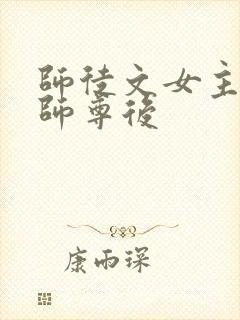 師徒文女主
師尊後
康雨琛